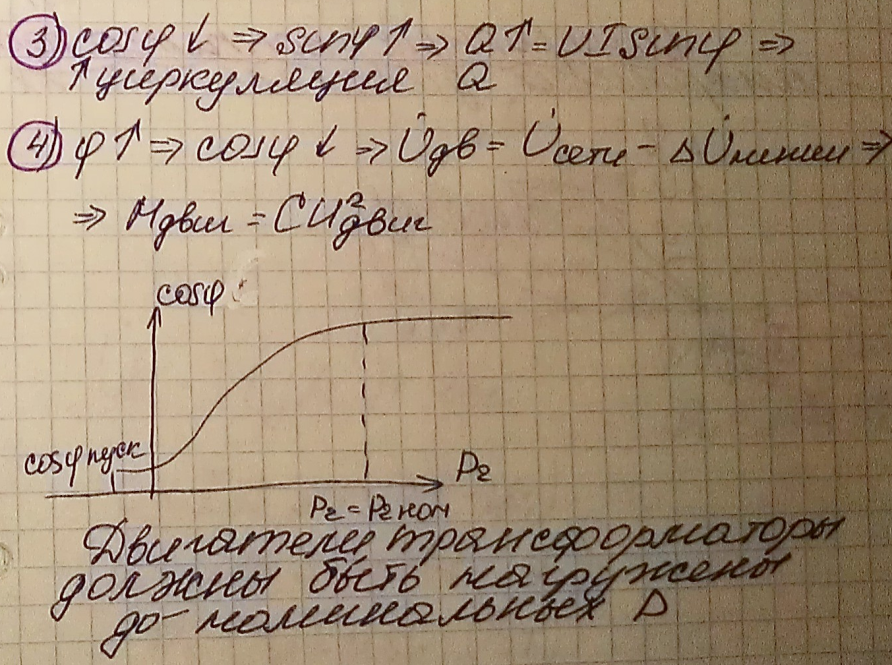 3) cosφ ↓ ⇒ sinφ ↑ ⇒ Q↑ = UIsinφ ⇒
↑ циркуляция Q
4) φ ↑ ⇒ cosφ ↓ ⇒ U̇дв = U̇сети - ΔU̇линии ⇒
⇒ Mдвиг = CU²двиг
cosφ
cosφ пуск
P₂
P₂ = P₂ ном
Двигатели трансформаторы
должны быть нагружены
до номинальных P